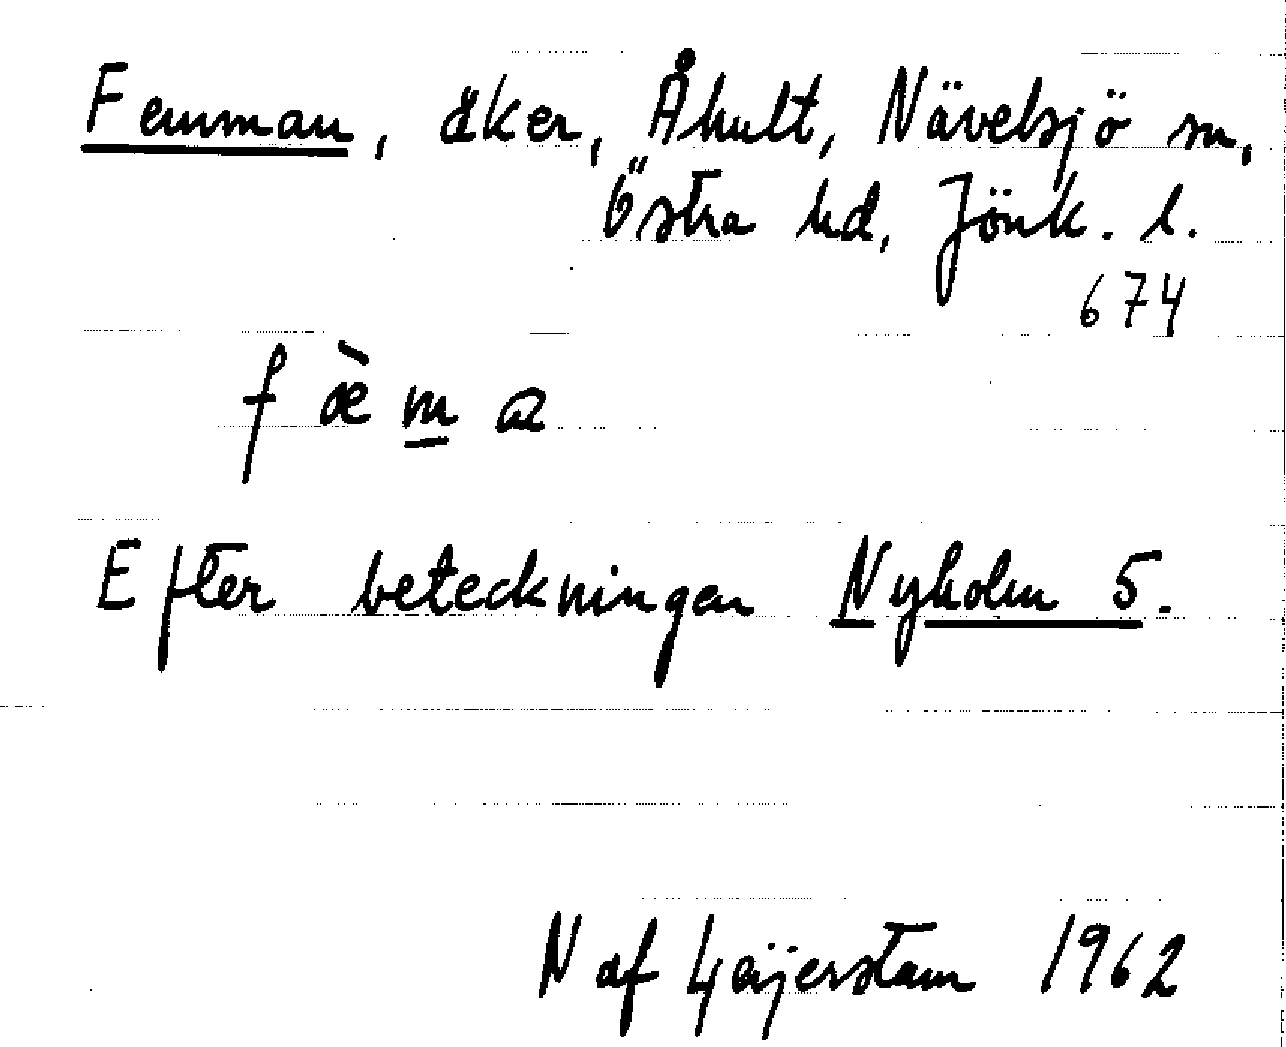 Femman, åker, Åhult, Nävelsjö sn,
Östra hd, Jönk. l.
674
f æ̀ m a
Efter beteckningen Nyholm 5.
N af Geijerstam 1962